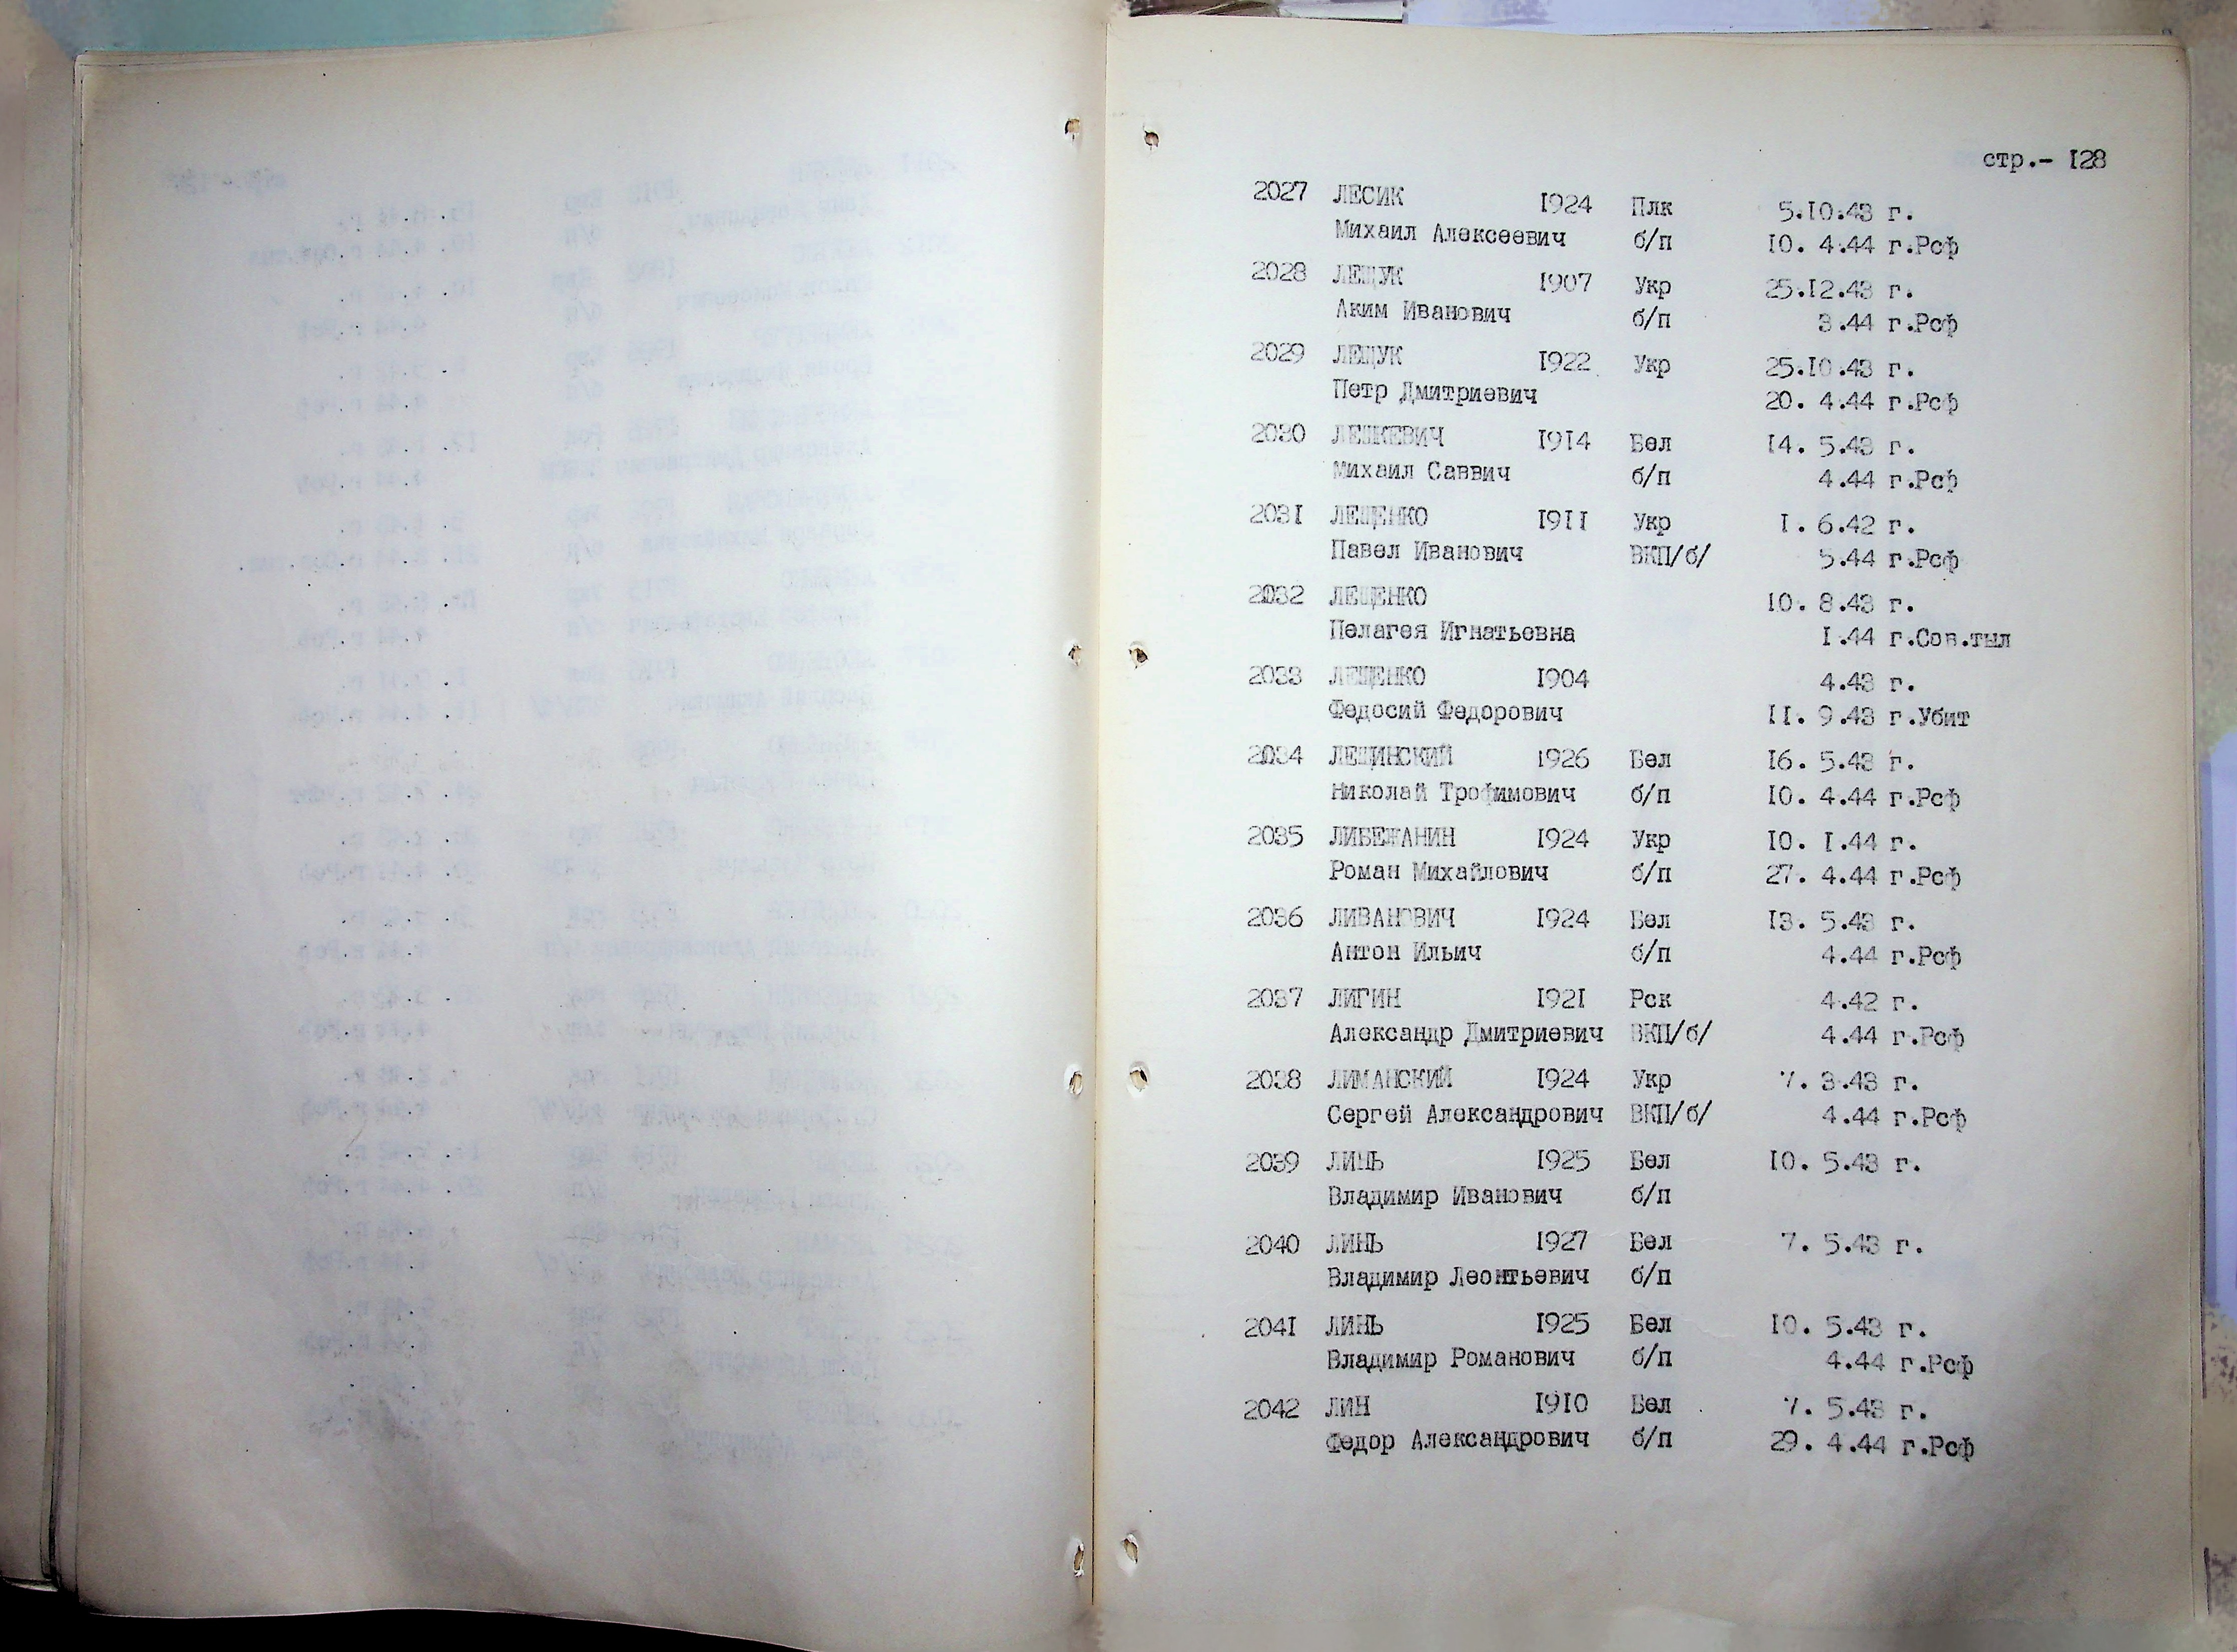 стр.- 128
2027 ЛЕСИК 1924 Плк 5.10.43 г.
Михаил Алексеевич б/п 10. 4.44 г.Рсф
2028 ЛЕЩУК 1907 Укр 25.12.43 г.
Аким Иванович б/п 3.44 г.Рсф
2029 ЛЕЩУК 1922 Укр 25.10.43 г.
Петр Дмитриевич 20. 4.44 г.Рсф
2030 ЛЕШКЕВИЧ 1914 Бел 14. 5.43 г.
Михаил Саввич б/п 4.44 г.Рсф
2031 ЛЕЩЕНКО 1911 Укр 1. 6.42 г.
Павел Иванович ВКП/б/ 5.44 г.Рсф
2032 ЛЕЩЕНКО 10. 8.43 г.
Пелагея Игнатьевна 1.44 г.Сов.тыл
2033 ЛЕЩЕНКО 1904 4.43 г.
Федосий Федорович 11. 9.43 г.Убит
2034 ЛЕЩИНСКИЙ 1926 Бел 16. 5.43 г.
Николай Трофимович б/п 10. 4.44 г.Рсф
2035 ЛИБЕЖАНИН 1924 Укр 10. 1.44 г.
Роман Михайлович б/п 27. 4.44 г.Рсф
2036 ЛИВАНОВИЧ 1924 Бел 13. 5.43 г.
Антон Ильич б/п 4.44 г.Рсф
2037 ЛИГИН 1921 Рск 4.42 г.
Александр Дмитриевич ВКП/б/ 4.44 г.Рсф
2038 ЛИМАНСКИЙ 1924 Укр 7. 3.43 г.
Сергей Александрович ВКП/б/ 4.44 г.Рсф
2039 ЛИНЬ 1925 Бел 10. 5.43 г.
Владимир Иванович б/п
2040 ЛИНЬ 1927 Бел 7. 5.43 г.
Владимир Леонтьевич б/п
2041 ЛИНЬ 1925 Бел 10. 5.43 г.
Владимир Романович б/п 4.44 г.Рсф
2042 ЛИН 1910 Бел 7. 5.43 г.
Федор Александрович б/п 29. 4.44 г.Рсф